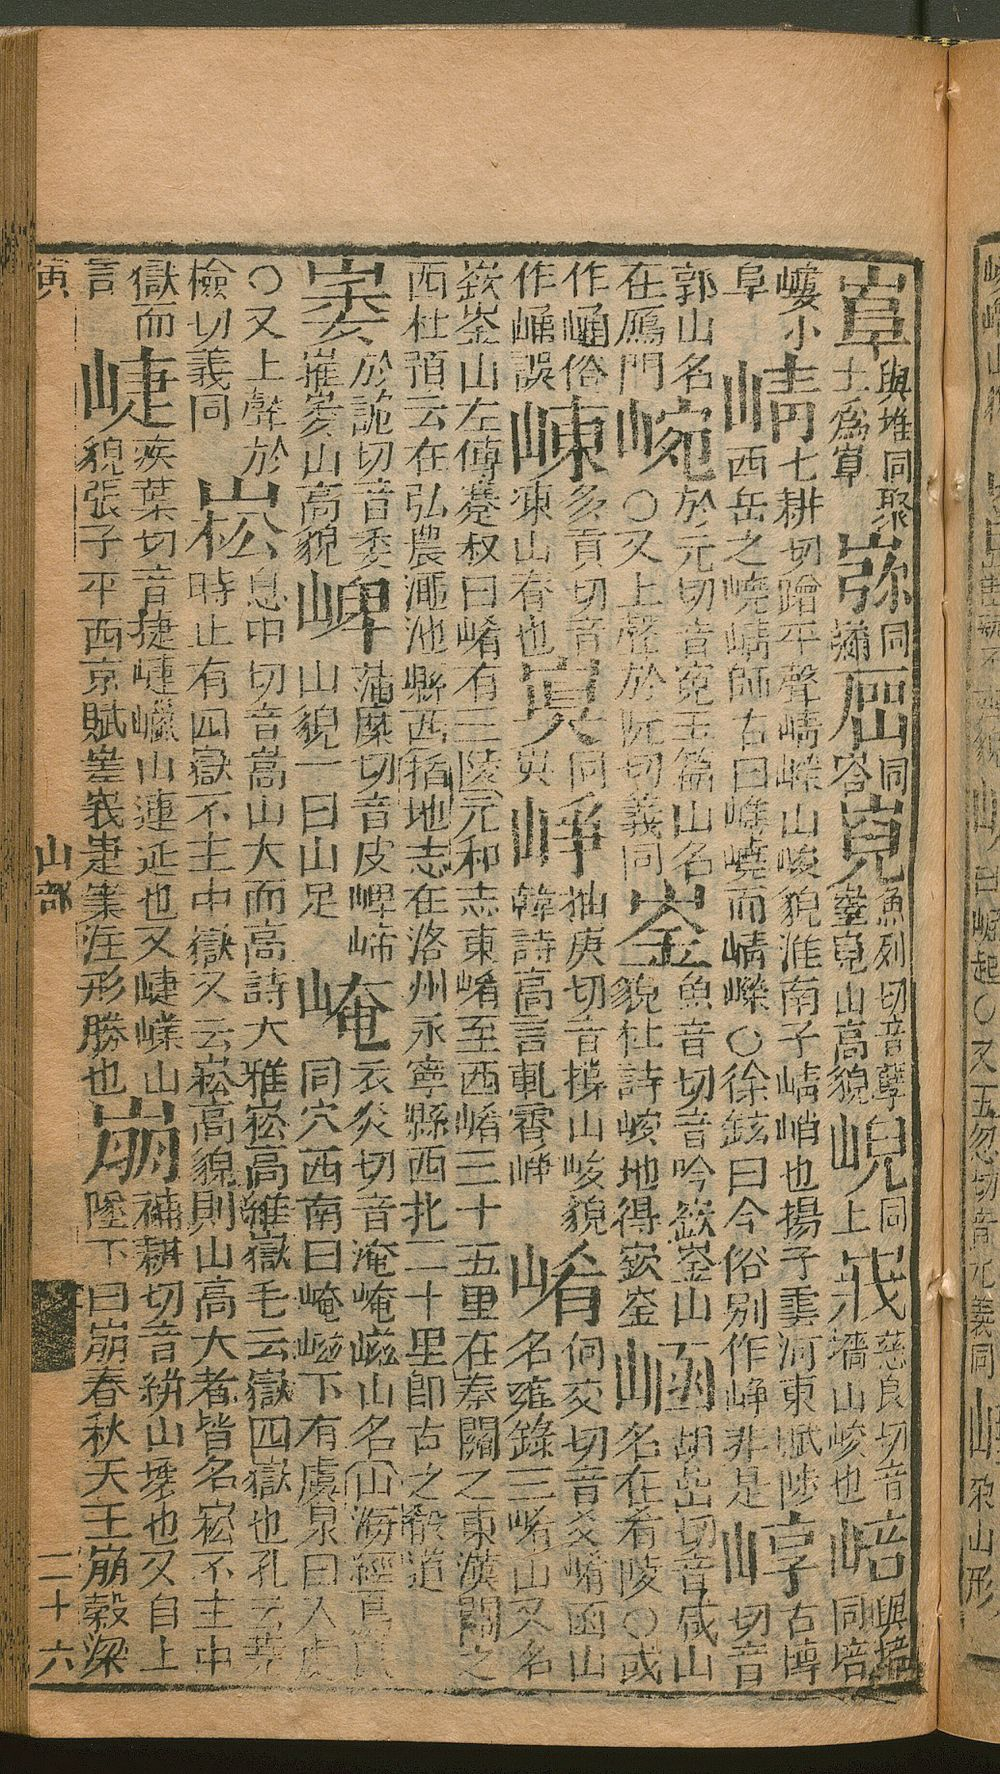 與堆同聚
土為 同 同 㟯 魚列切音孽
㟯山高貌 峴 同
上 慈良切音
墻山峻也 㟝 與培
同培
嶁小
阜 崝 七耕切平聲崝嶸山峻貌淮南子崝峭也揚子雲河東賦陟
西岳之嶢崝師古曰嶕嶢而崝嶸〇徐鉉曰今俗别作崢非是 崞 古博
切音
郭山名
在鴈門 㟶 於元切音寃玉篇山名
〇又上聲於阮切義同 崟 魚音切音吟嶔崟山
貌杜詩峻地得嶔崟 崡 胡嵒切音咸山
名在崤陵〇或
作俗
作誤 崠 多貢切音
凍山脊也 同
崢 抽庚切音撐山峻貌
韓詩高言軋霄崢 崤 何交切音爻崤函山
名雍錄三崤山又名
嶔崟山左傳蹇叔曰崤有三陵元和志東崤至西崤三十五里在秦關之東漢關之
西杜預云在弘農澠池縣西括地志在洛州永寧縣西北二十里即古之殽道
崣 於詭切音委
崣山高貌 崥 蒲縻切音皮崥崹
山貌一曰山足 崦 衣炎切音淹崦嵫山名山海經鳥鼠
同穴西南曰崦嵫下有虞泉日入處
〇又上聲於
檢切義同 崧 息中切音嵩山大而高詩大雅崧高維嶽毛云嶽四嶽也孔云堯
時止有四嶽不主中嶽又云崧高貌則山高大者皆名崧不主中
嶽而
言 崨 疾葉切音捷崨山連延也又崨嶫山
貌張子平西京賦嵳峩崨嶪注形勝也 崩 補耕切音絣山壞也又自上
墜下曰崩春秋天王崩穀梁
寅
山部
二十六